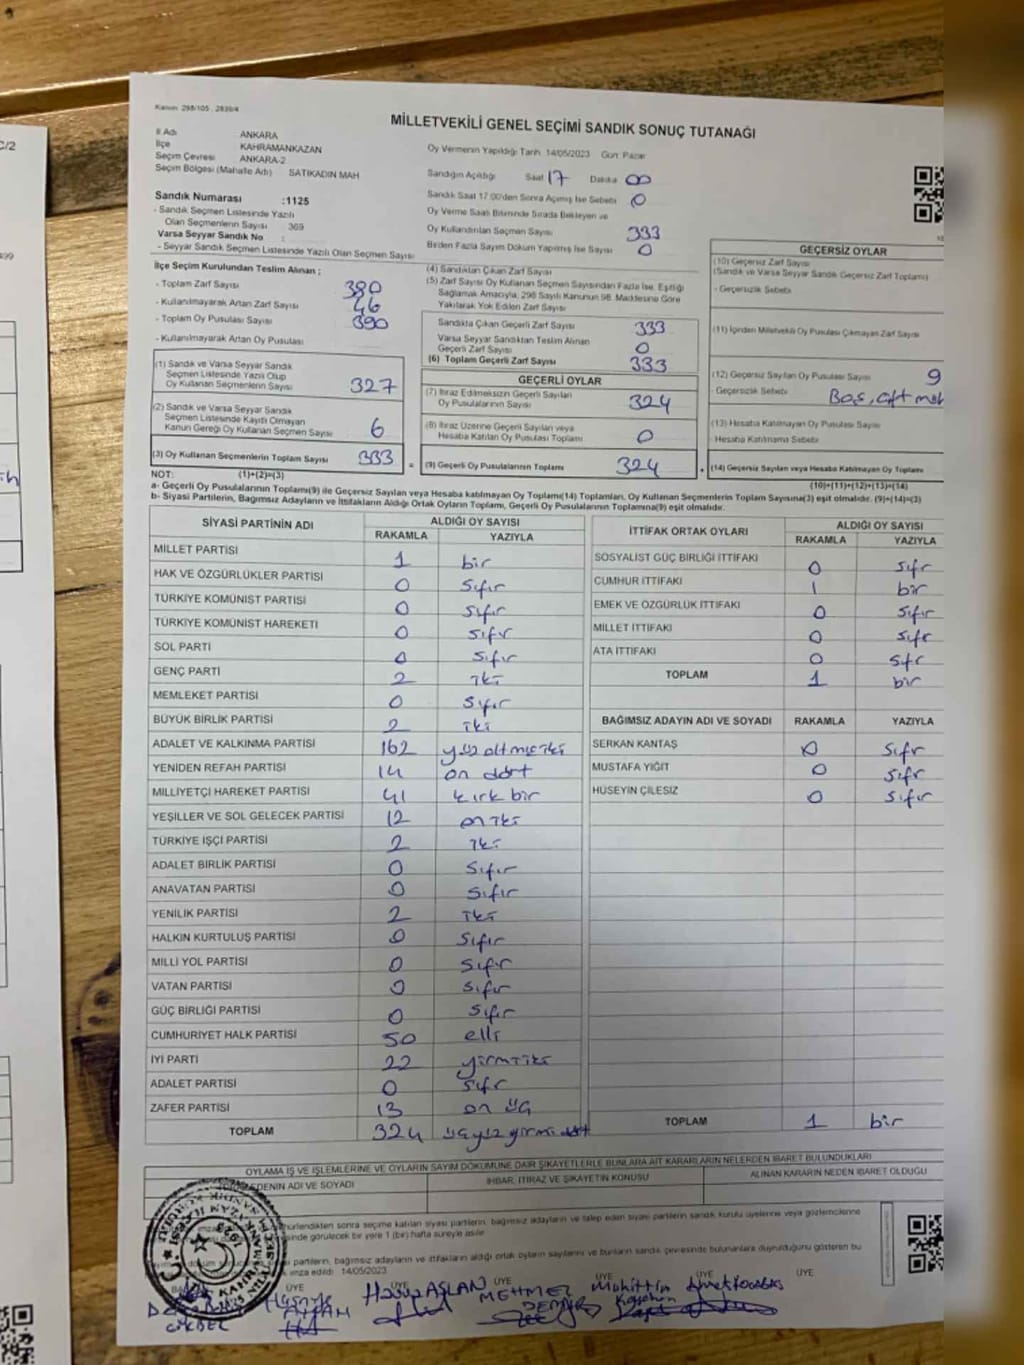 Kanun: 298/105 . 2839/4
MİLLETVEKİLİ GENEL SEÇİMİ SANDIK SONUÇ TUTANAĞI
İl Adı ANKARA
İlçe KAHRAMANKAZAN
Seçim Çevresi ANKARA-2
Seçim Bölgesi (Mahalle Adı) SATIKADIN MAH
Oy Vermenin Yapıldığı Tarih: 14/05/2023 Gün: Pazar
Sandığın Açıldığı Saat 17 Dakika 00
Sandık Numarası :1125
- Sandık Seçmen Listesinde Yazılı
Olan Seçmenlerin Sayısı 369
Varsa Seyyar Sandık No :
- Seyyar Sandık Seçmen Listesinde Yazılı Olan Seçmen Sayısı
Sandık Saat 17:00'den Sonra Açılmış İse Sebebi 0
Oy Verme Saati Bitiminde Sırada Bekleyen ve
Oy Kullandırılan Seçmen Sayısı 333
Birden Fazla Sayım Döküm Yapılmış İse Sayısı 0
İlçe Seçim Kurulundan Teslim Alınan ;
- Toplam Zarf Sayısı 380
- Kullanılmayarak Artan Zarf Sayısı 46
- Toplam Oy Pusulası Sayısı 390
- Kullanılmayarak Artan Oy Pusulası
(1) Sandık ve Varsa Seyyar Sandık
Seçmen Listesinde Yazılı Olup
Oy Kullanan Seçmenlerin Sayısı 327
(2) Sandık ve Varsa Seyyar Sandık
Seçmen Listesinde Kayıtlı Olmayan
Kanun Gereği Oy Kullanan Seçmen Sayısı 6
(3) Oy Kullanan Seçmenlerin Toplam Sayısı 333
(4) Sandıktan Çıkan Zarf Sayısı
(5) Zarf Sayısı Oy Kullanan Seçmen Sayısından Fazla İse, Eşitliği
Sağlamak Amacıyla; 298 Sayılı Kanunun 98. Maddesine Göre
Yakılarak Yok Edilen Zarf Sayısı
Sandıkta Çıkan Geçerli Zarf Sayısı 333
Varsa Seyyar Sandıktan Teslim Alınan
Geçerli Zarf Sayısı 0
(6) Toplam Geçerli Zarf Sayısı 333
GEÇERLİ OYLAR
(7) İtiraz Edilmeksizin Geçerli Sayılan
Oy Pusulalarının Sayısı 324
(8) İtiraz Üzerine Geçerli Sayılan veya
Hesaba Katılan Oy Pusulası Toplamı 0
= (9) Geçerli Oy Pusulalarının Toplamı 324
GEÇERSİZ OYLAR
(10) Geçersiz Zarf Sayısı
(Sandık ve Varsa Seyyar Sandık Geçersiz Zarf Toplamı)
- Geçersizlik Sebebi
(11) İçinden Milletvekili Oy Pusulası Çıkmayan Zarf Sayısı
(12) Geçersiz Sayılan Oy Pusulası Sayısı 9
- Geçersizlik Sebebi Boş, çift müh
(13) Hesaba Katılmayan Oy Pusulası Sayısı
- Hesaba Katılmama Sebebi
+ (14) Geçersiz Sayılan veya Hesaba Katılmayan Oy Toplamı
NOT: (1)+(2)=(3) (10)+(11)+(12)+(13)=(14)
a- Geçerli Oy Pusulalarının Toplamı(9) ile Geçersiz Sayılan veya Hesaba katılmayan Oy Toplamı(14) Toplamları, Oy Kullanan Seçmenlerin Toplam Sayısına(3) eşit olmalıdır. (9)+(14)=(3)
b- Siyasi Partilerin, Bağımsız Adayların ve İttifakların Aldığı Ortak Oyların Toplamı, Geçerli Oy Pusulalarının Toplamına(9) eşit olmalıdır.
SİYASİ PARTİNİN ADI ALDIĞI OY SAYISI
RAKAMLA YAZIYLA
MİLLET PARTİSİ 1 bir
HAK VE ÖZGÜRLÜKLER PARTİSİ 0 sıfır
TÜRKİYE KOMÜNİST PARTİSİ 0 sıfır
TÜRKİYE KOMÜNİST HAREKETİ 0 sıfır
SOL PARTİ 0 sıfır
GENÇ PARTİ 2 iki
MEMLEKET PARTİSİ 0 sıfır
BÜYÜK BİRLİK PARTİSİ 2 iki
ADALET VE KALKINMA PARTİSİ 162 yüz altmış iki
YENİDEN REFAH PARTİSİ 14 on dört
MİLLİYETÇİ HAREKET PARTİSİ 41 kırk bir
YEŞİLLER VE SOL GELECEK PARTİSİ 12 on iki
TÜRKİYE İŞÇİ PARTİSİ 2 iki
ADALET BİRLİK PARTİSİ 0 sıfır
ANAVATAN PARTİSİ 0 sıfır
YENİLİK PARTİSİ 2 iki
HALKIN KURTULUŞ PARTİSİ 0 sıfır
MİLLİ YOL PARTİSİ 0 sıfır
VATAN PARTİSİ 0 sıfır
GÜÇ BİRLİĞİ PARTİSİ 0 sıfır
CUMHURİYET HALK PARTİSİ 50 elli
İYİ PARTİ 22 yirmi iki
ADALET PARTİSİ 0 sıfır
ZAFER PARTİSİ 13 on üç
TOPLAM 324 üçyüz yirmi dört
İTTİFAK ORTAK OYLARI ALDIĞI OY SAYISI
RAKAMLA YAZIYLA
SOSYALİST GÜÇ BİRLİĞİ İTTİFAKI 0 sıfır
CUMHUR İTTİFAKI 1 bir
EMEK VE ÖZGÜRLÜK İTTİFAKI 0 sıfır
MİLLET İTTİFAKI 0 sıfır
ATA İTTİFAKI 0 sıfır
TOPLAM 1 bir
BAĞIMSIZ ADAYIN ADI VE SOYADI RAKAMLA YAZIYLA
SERKAN KANTAŞ 0 sıfır
MUSTAFA YİĞİT 0 sıfır
HÜSEYİN ÇİLESİZ 0 sıfır
TOPLAM 1 bir
OYLAMA İŞ VE İŞLEMLERİNE VE OYLARIN SAYIM DÖKÜMÜNE DAİR ŞİKAYETLERLE BUNLARA AİT KARARLARIN NELERDEN İBARET BULUNDUKLARI
EDENİN ADI VE SOYADI İHBAR, İTİRAZ VE ŞİKAYETİN KONUSU ALINAN KARARIN NEDEN İBARET OLDUĞU
mühürlendikten sonra seçime katılan siyasi partilerin, bağımsız adayların ve talep eden siyasi partilerin sandık kurulu üyelerine veya gözlemcilerine
sinde görülecek bir yere 1 (bir) hafta süreyle asılır.
partilerin, bağımsız adayların ve ittifakların aldığı ortak oyların sayılarını ve bunların sandık çevresinde bulunanlara duyurulduğunu gösteren bu
imza edildi. 14/05/2023
ÜYE ÜYE ÜYE ÜYE ÜYE ÜYE
ASLAN MEHMET Muhittin